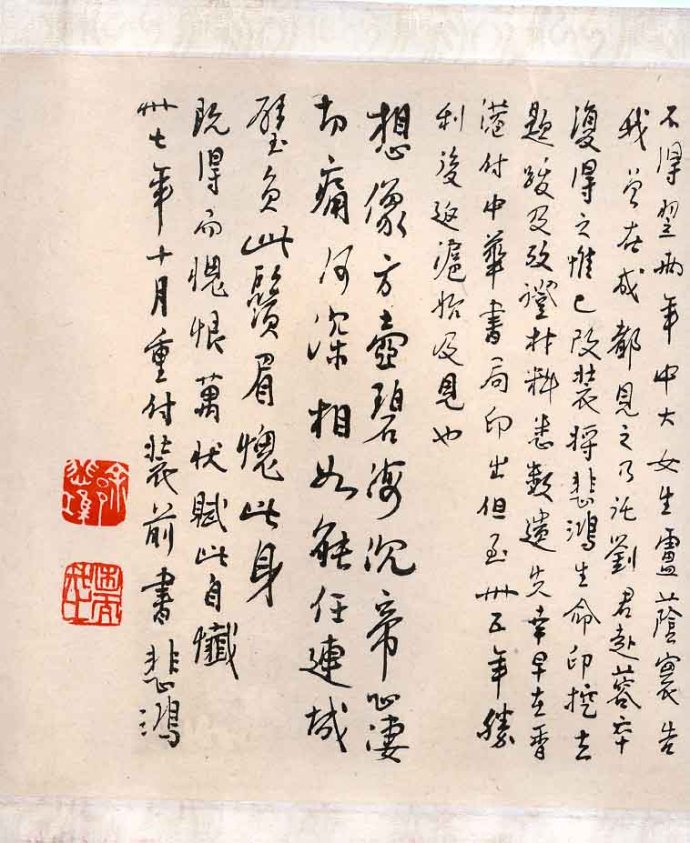 不得翌兩年中大女生盧蔭寰告
我曾在成都見之乃託劉君赴蓉卒
復得之惟已改裝將悲鴻生命印挖去
題跋及攷證材料悉數遺失幸早在香
港付中華書局印出但至卅五年勝
利後返滬始及見也
想像方壺碧海沉帝心淒
切痛何深相如能任連城
璧負此鬚眉愧此身
既得而愧恨萬狀賦此自懺
卅七年十月重付裝前書悲鴻